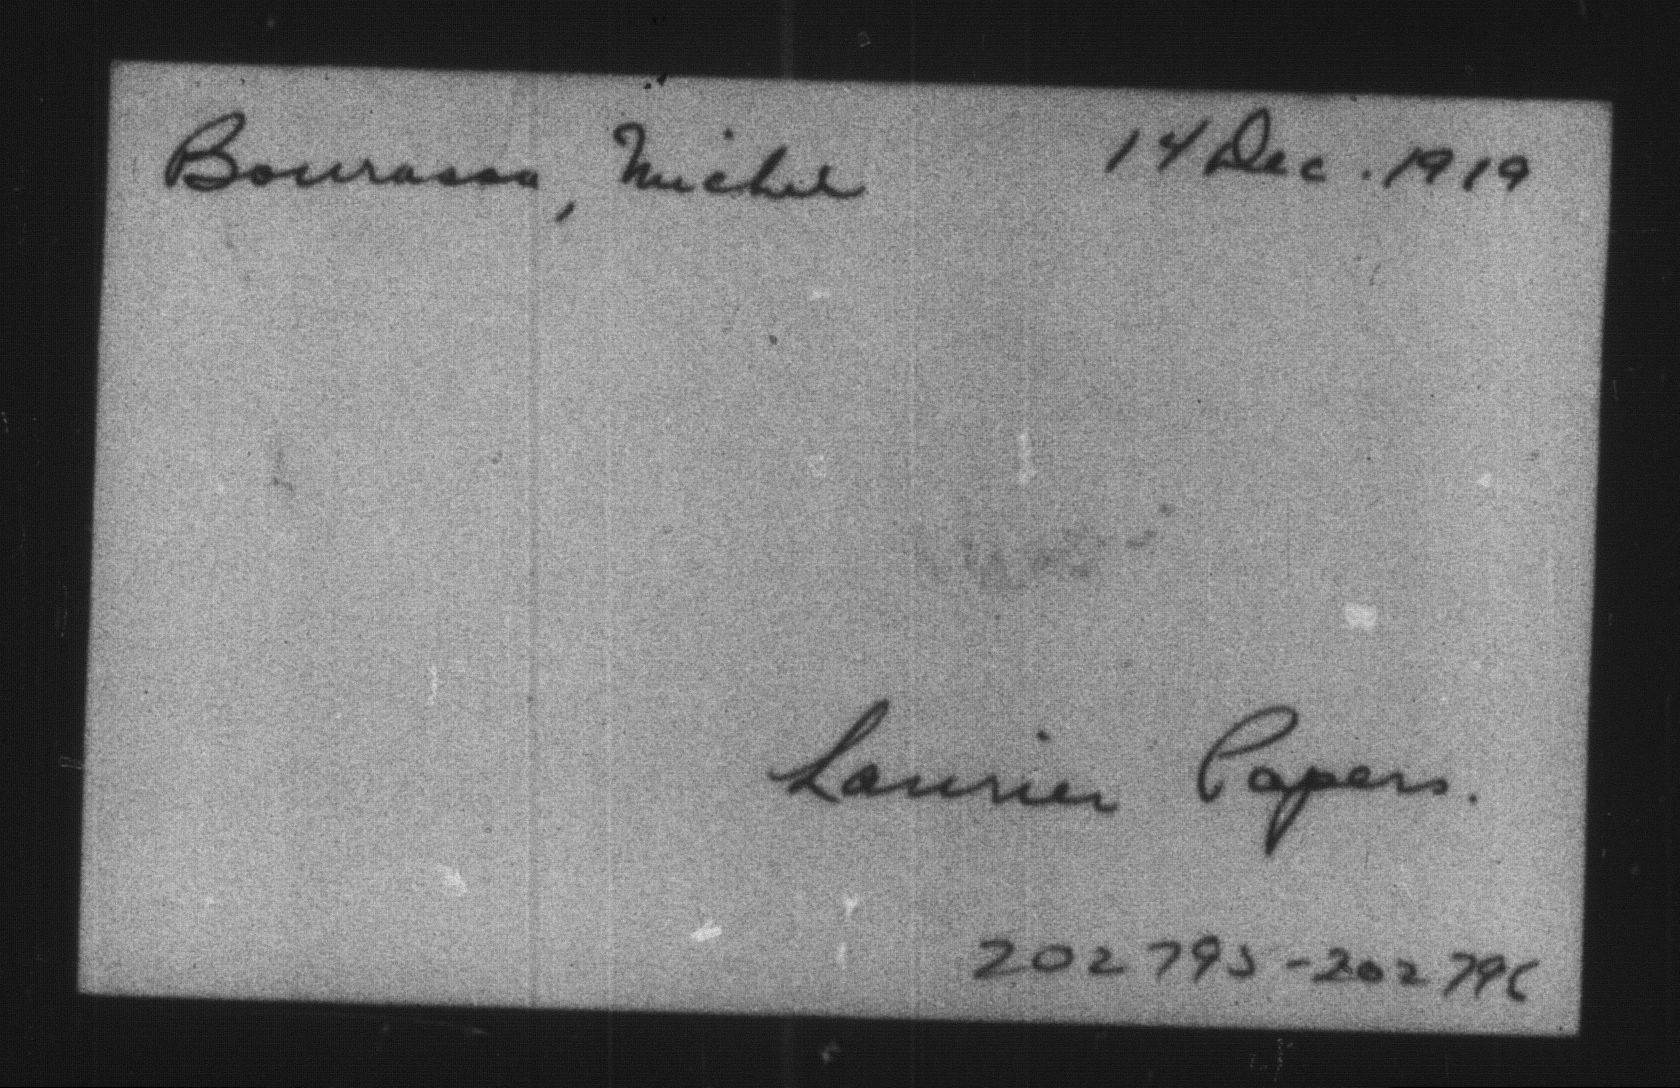 Bourassa, Michel 14 Dec. 1919
Laurier Papers.
202795-202796